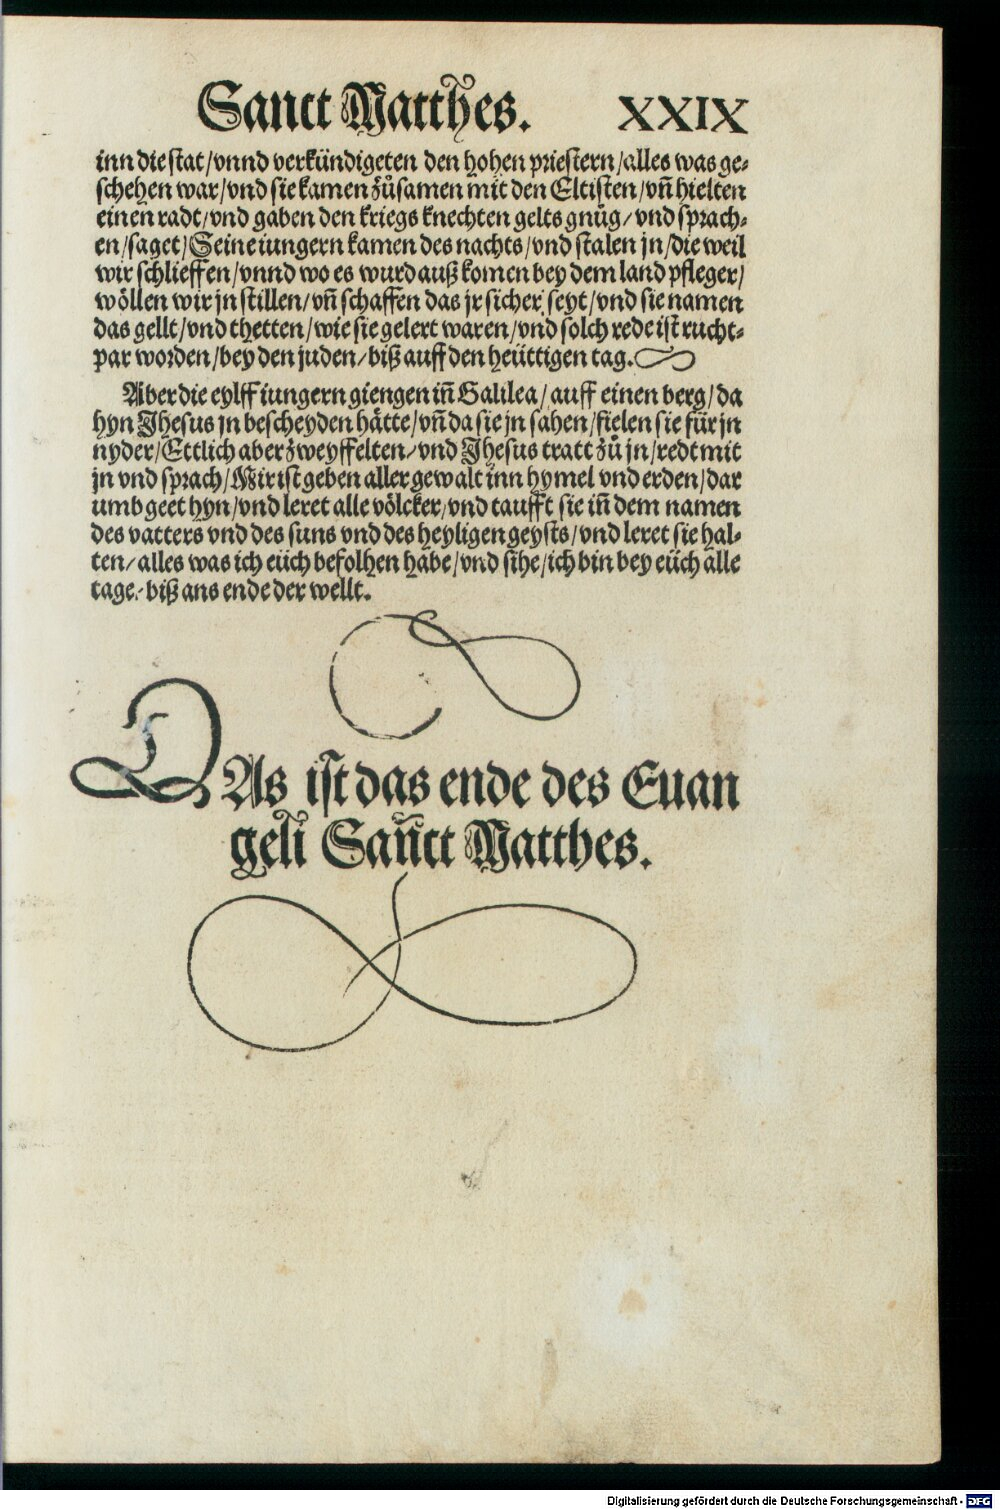 Sanct Matthes. XXIX
inn die stat/vnnd verkündigeten den hohen priestern/alles was ge-
schehen war/vnd sie kamen zůsamen mit den Eltisten/vñ hielten
einen radt/vnd gaben den kriegs knechten gelts gnůg/vnd sprach-
en/saget/Seine iungern kamen des nachts/vnd stalen jn/die weil
wir schlieffen/vnnd wo es wurd auß komen bey dem land pfleger/
wöllen wir jn stillen/vñ schaffen das jr sicher seyt/vnd sie namen
das gellt/vnd thetten/wie sie gelert waren/vnd solch rede ist rucht-
par worden/bey den juden/biß auff den heüttigen tag.
Aber die eylff iungern giengen iñ Galilea/auff einen berg/da
hyn Jhesus jn bescheyden hätte/vñ da sie jn sahen/fielen sie für jn
nyder/Ettlich aber zweyffelten/vnd Jhesus tratt zů jn/redt mit
jn vnd sprach/Mir ist geben aller gewalt inn hymel vnd erden/dar
umb geet hyn/vnd leret alle völcker/vnd taufft sie iñ dem namen
des vatters vnd des suns vnd des heyligen geysts/vnd leret sie hal-
ten/alles was ich eüch befolhen habe/vnd sihe/ich bin bey eüch alle
tage/biß ans ende der wellt.
DAs ist das ende des Euan
geli Sañct Matthes.
Digitalisierung gefördert durch die Deutsche Forschungsgemeinschaft - DFG